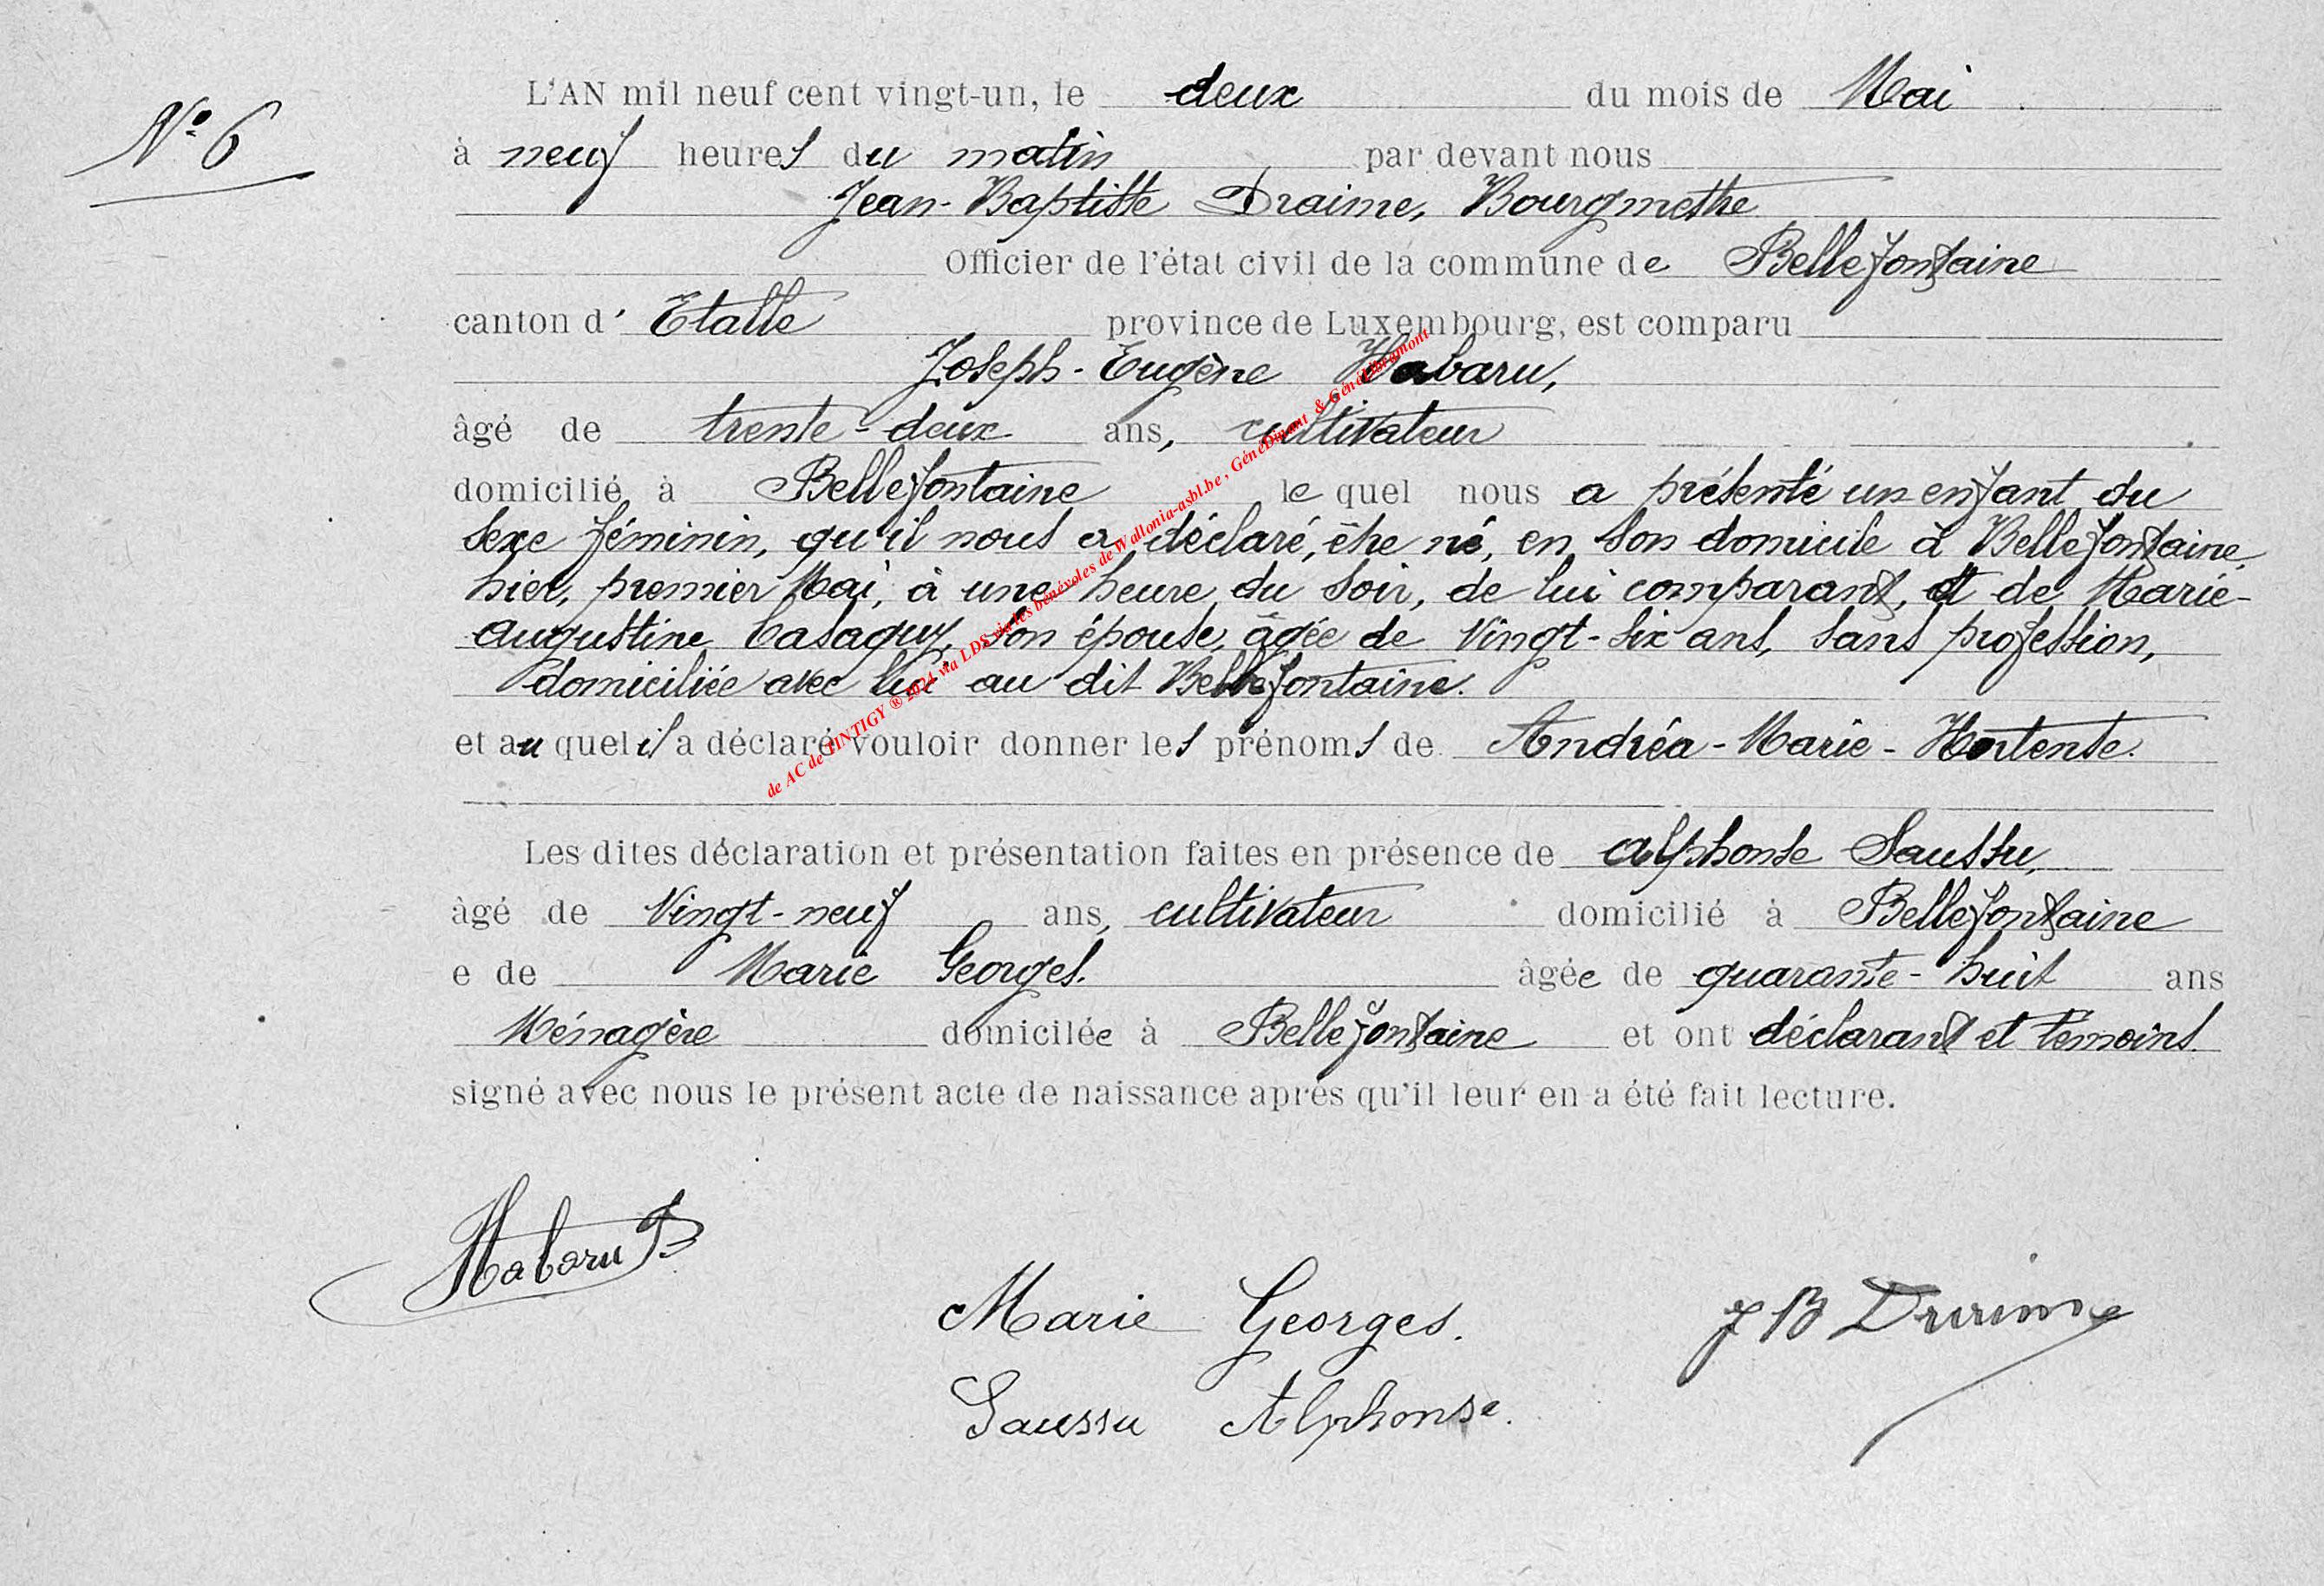 N° 6
L'AN mil neuf cent vingt-un, le deux du mois de Mai
à neuf heures du matin par devant nous
Jean-Baptiste Draime, Bourgmestre
Officier de l'état civil de la commune de Bellefontaine
canton d' Etalle province de Luxembourg, est comparu
Joseph-Eugène Habaru,
âgé de trente-deux ans, cultivateur
domicilié à Bellefontaine le quel nous a présenté un enfant du
sexe féminin, qu'il nous a déclaré, être né, en son domicile à Bellefontaine,
hier, premier Mai, à une heure du soir, de lui comparant, et de Marie-
Augustine Casaquy, son épouse, âgée de vingt-six ans, sans profession,
domiciliée avec lui au dit Bellefontaine.
et au quel il a déclaré vouloir donner les prénoms de Andréa-Marie-Hortense.
Les dites déclaration et présentation faites en présence de Alphonse Saussu,
âgé de vingt-neuf ans, cultivateur domicilié à Bellefontaine
e de Marie Georges. âgée de quarante-huit ans
Ménagère domicilée à Bellefontaine et ont déclarant et témoins
signé avec nous le présent acte de naissance après qu'il leur en a été fait lecture.
Habaru J
Marie Georges.
J B Draime
Saussu Alphonse.
de AC de TINTIGY ® 2024 via LDS via les bénévoles de Wallonia-asbl.be, GénéDinant & GénéLibramont